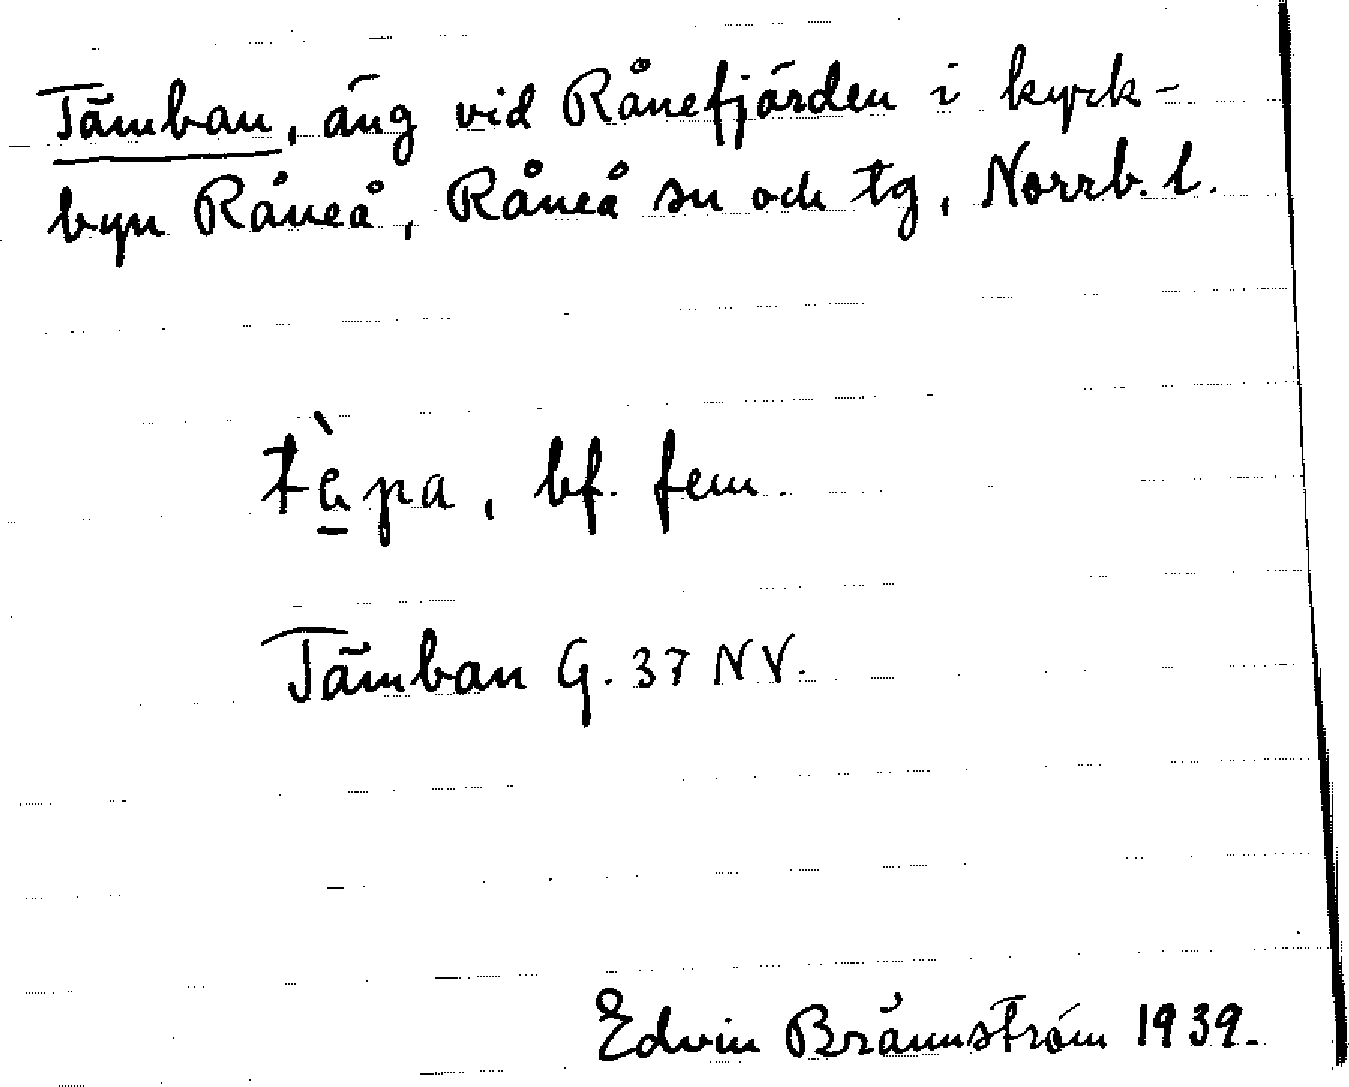 Tämban, äng vid Rånefjärden i kyrk-
byn Råneå, Råneå sn och tg, Norrb. l.
tὰpa, bf. fem.
Tämban G. 37 NV.
Edvin Brännström 1939.